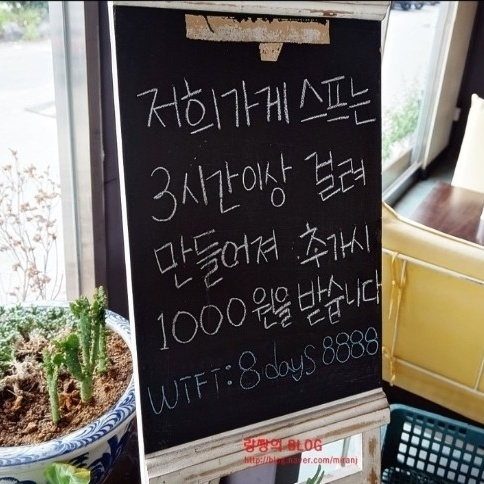 저희가게 스프는
3시간이상 걸려
만들어져 추가시
1000원을 받습니다
WIFI: 8days 8888
랑짱의 BLOG
http://blog.naver.com/miranj